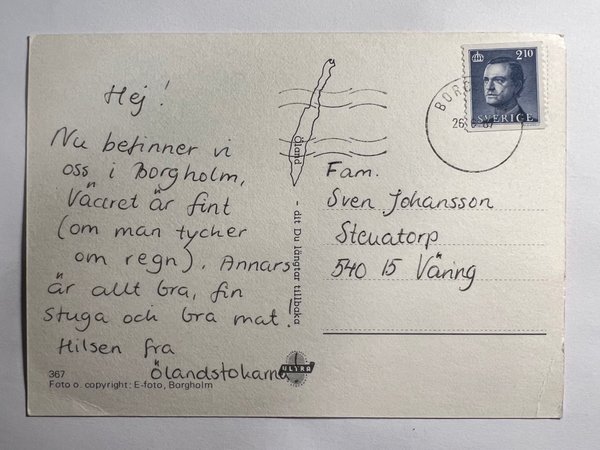 Hej!
Nu befinner vi
oss i Borgholm,
Vädret är fint
(om man tycker
om regn). Annars
är allt bra, fin
stuga och bra mat!
Hilsen fra
ölandstokarna
367
Foto o. copyright: E-foto, Borgholm
Öland - dit Du längtar tillbaka
ULTRA
2.10
SVERIGE
26
87
Fam.
Sven Johansson
540 15 Väring